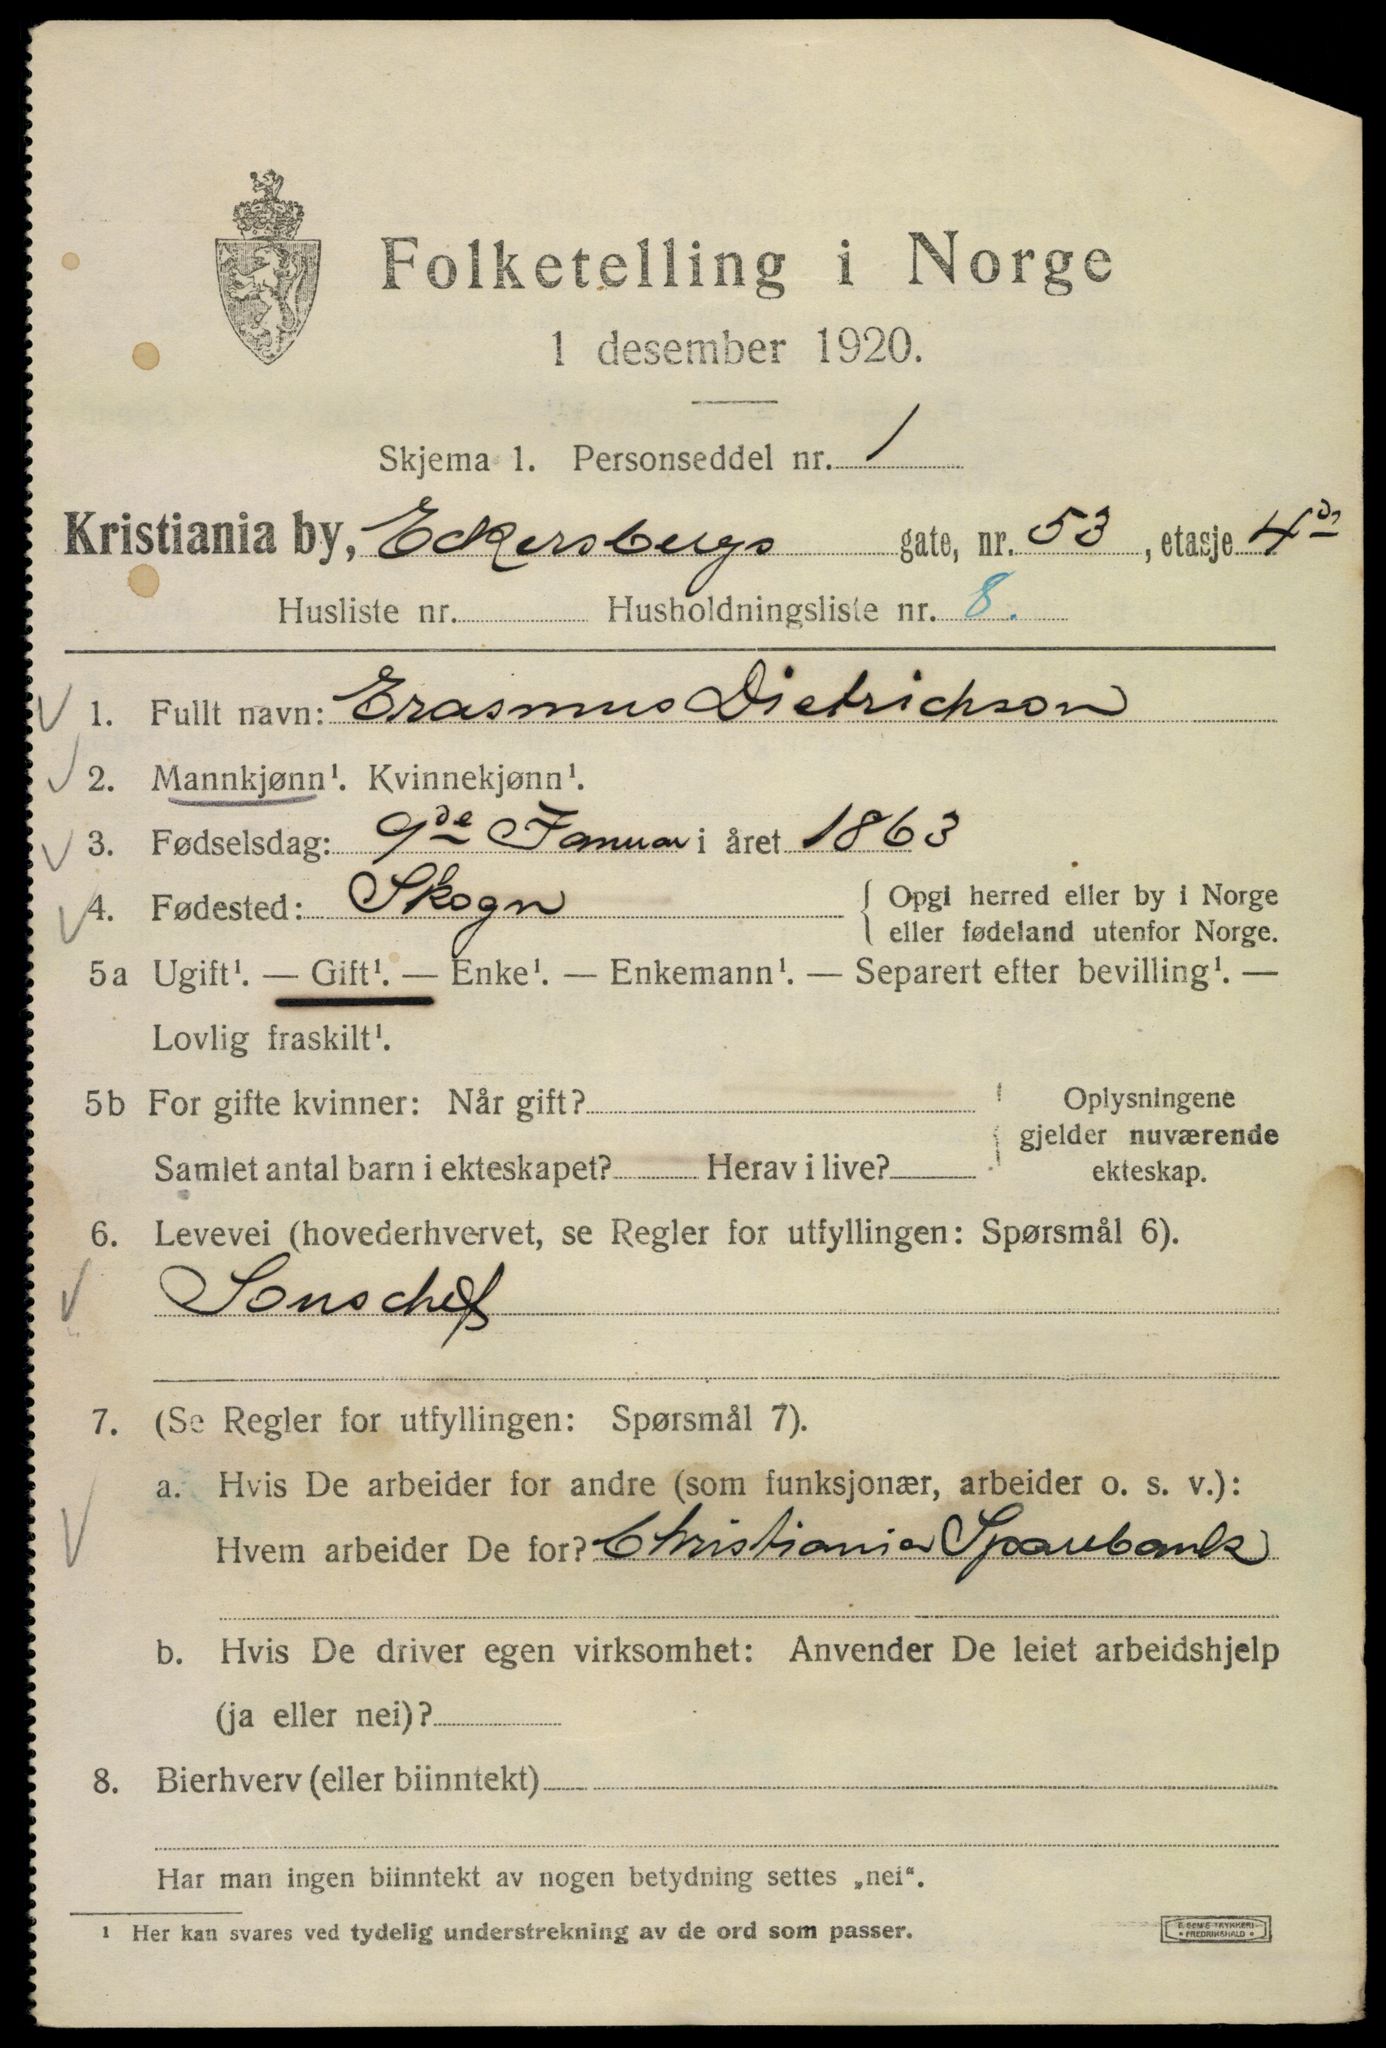 Folketelling i Norge
1 desember 1920.
Skjema 1. Personseddel nr. 1
Kristiania by, Eckersbergs gate, nr. 53, etasje 4de
Husliste nr. Husholdningsliste nr. 8.
1. Fullt navn: Erasmus Dietrichson
2. Mannkjønn¹. Kvinnekjønn¹.
3. Fødselsdag: 9de Januar i året 1863
4. Fødested: Skogn { Opgi herred eller by i Norge
eller fødeland utenfor Norge.
5a Ugift¹. — Gift¹. — Enke¹. — Enkemann¹. — Separert efter bevilling¹. —
Lovlig fraskilt¹.
5b For gifte kvinner: Når gift? Oplysningene
gjelder nuværende
Samlet antal barn i ekteskapet? Herav i live? ekteskap.
6. Levevei (hovederhvervet, se Regler for utfyllingen: Spørsmål 6).
Souschef
7. (Se Regler for utfyllingen: Spørsmål 7).
a. Hvis De arbeider for andre (som funksjonær, arbeider o. s. v.):
Hvem arbeider De for? Christiania Sparebank
b. Hvis De driver egen virksomhet: Anvender De leiet arbeidshjelp
(ja eller nei)?
8. Bierhverv (eller biinntekt) —
Har man ingen biinntekt av nogen betydning settes „nei“.
¹ Her kan svares ved tydelig understrekning av de ord som passer.
TRYKKERI
FREDRIKSHALD